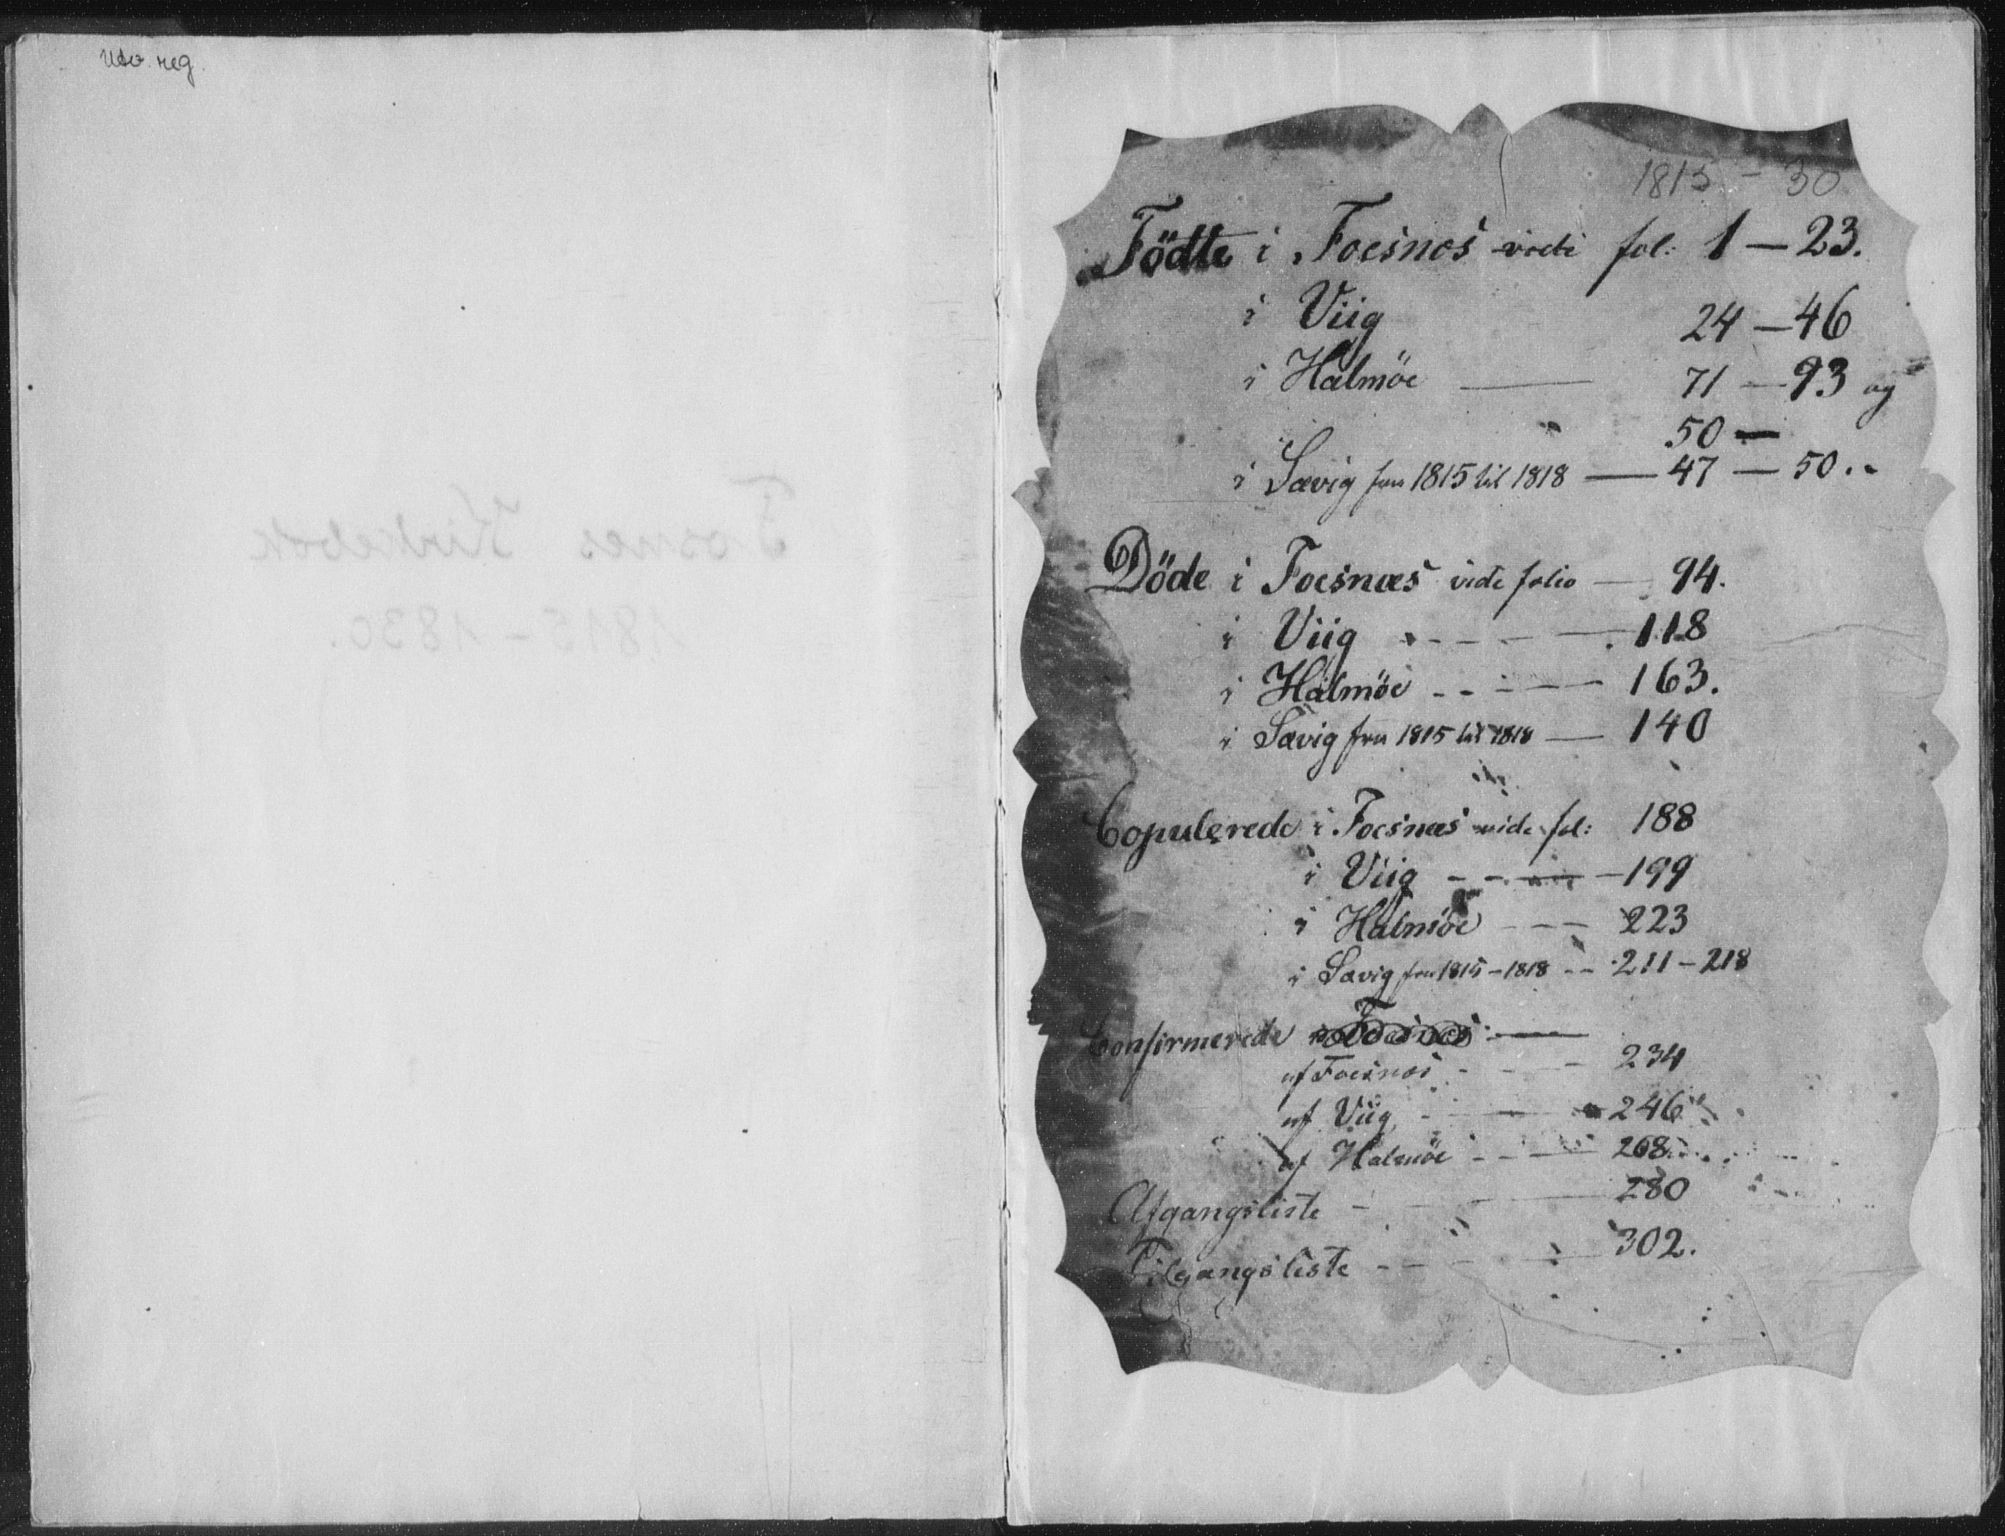 Utv. reg.
Fosnes Kirkebok
1815 - 1830.
1815 - 30
Födte i Foesnes vide fol: 1 — 23.
i Viig 24 — 46
i Halmöe — 71 — 93 og
50 —
i Sævig fra 1815 til 1818 — 47 — 50.
Döde i Foesnæs vide folio — 94.
i Viig - - - — 118
i Halmöe - - - — 163.
i Sævig fra 1815 til 1818 — 140
Copulerede i Foesnæs vide fol: 188
i Viig - - — 199
i Halmöe - - - 223
i Sævig fra 1815 - 1818 - - 211 - 218
Confirmerede —
af Foesnæs - - - 234
af Viig - — 246
af Halmöe - - — 268
Afgangsliste - — 280
Tilgangsliste - - - - 302.